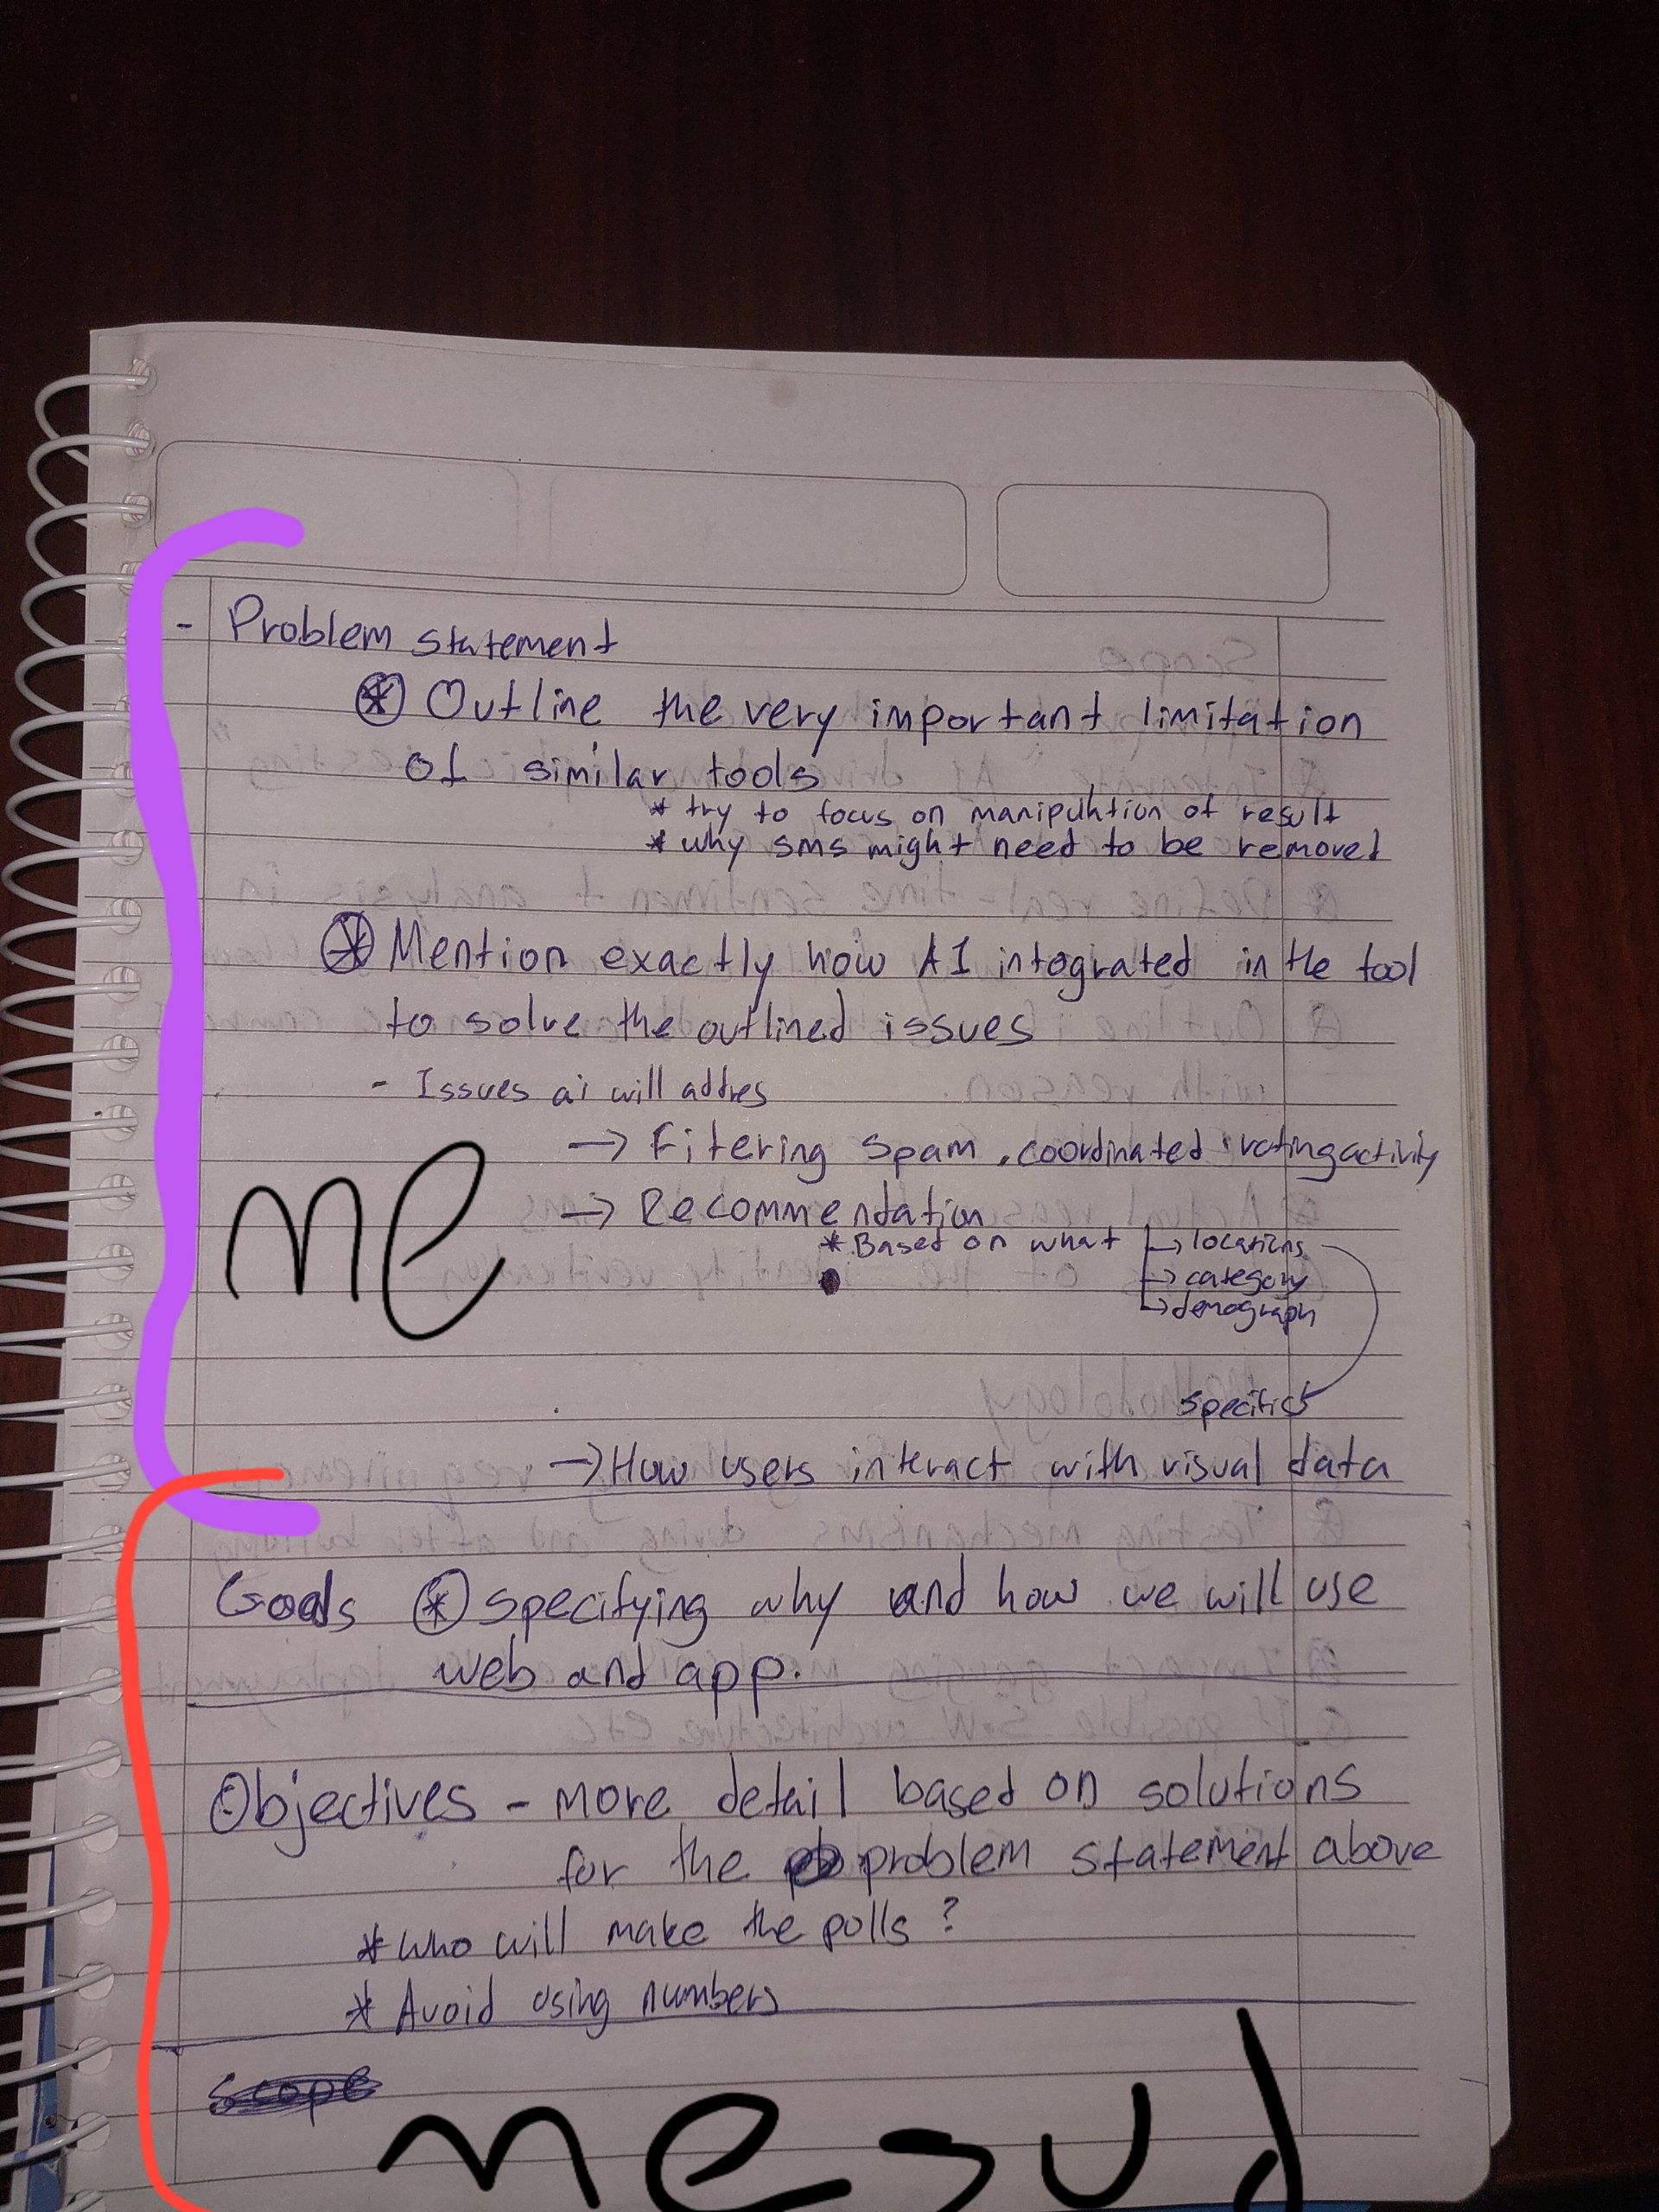 - Problem statement
* Outline the very important limitation
of similar tools
* try to focus on manipulation of result
* why sms might need to be removed
* Mention exactly how AI integrated in the tool
to solve the outlined issues
- Issues ai will addres
→ Filtering spam, coordinated votingactivity
→ Recommendation
* Based on what → locations
→ category
→ demograph
me
specifics
→ How users interact with visual data
Goals * specifying why and how we will use
web and app.
Objectives - more detail based on solutions
for the problem statement above
* who will make the polls ?
* Avoid using numbers
scope
mesud